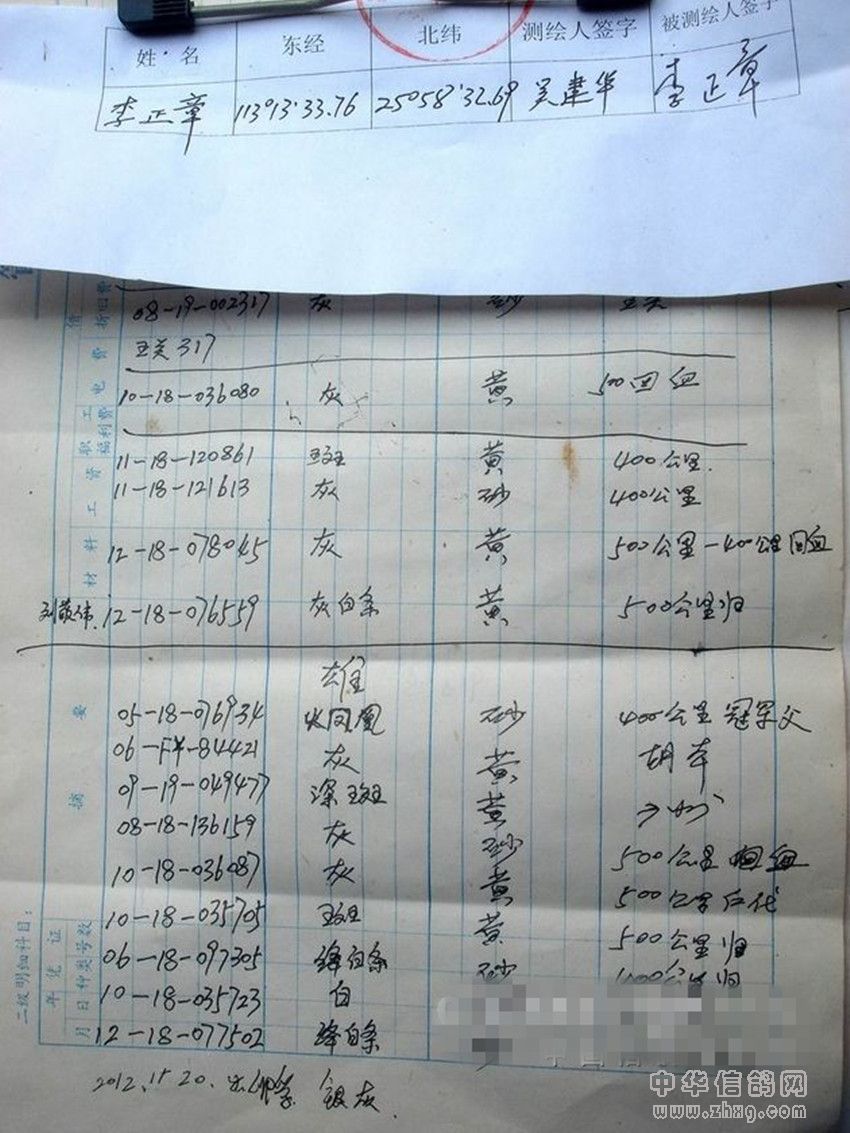 姓名 东经 北纬 测绘人签字 被测绘人签字
李正章 113°13'33.76 25°58'32.69 吴建华 李正章
08-19-002317 灰 砂
317
10-18-036080 灰 黄 500回血
11-18-120861 斑 黄 400公里.
11-18-121613 灰 砂 400公里
12-18-078045 灰 黄 500公里-400公里回血
12-18-076559 灰白条 黄 500公里归
雄
05-18-076934 火凤凰 砂 400公里冠军父
06- -84421 灰 黄 胡本
09-19-049477 深斑 黄
08-18-136159 灰 砂
10-18-036087 灰 黄 500公里回血
10-18-035705 斑 黄 500
06-18-097305 绛白条 砂 500公里归
10-18-035723 白 公里归
12-18-077502 绛白条
2012.11 20. 银灰
折旧费
电费
职工福利费
工资
材料
摘要
凭证
种类号数
年
月日
二级明细科目:
中华信鸽网
www.zhxg.com